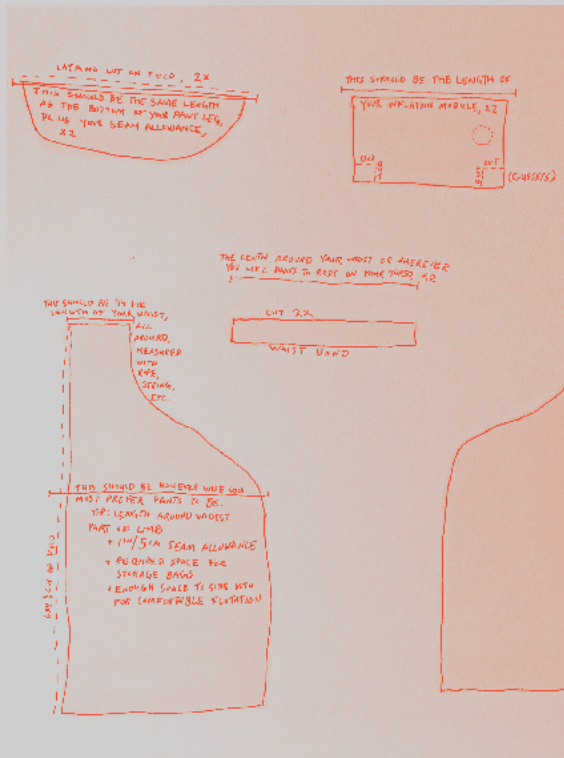 LAYING OUT ON FOLD, 2X
THIS SHOULD BE THE SAME LENGTH
AS THE BOTTOM OF YOUR PANT LEG,
PLUS YOUR SEAM ALLOWANCE,
X2
THIS SHOULD BE THE LENGTH OF
YOUR INFLATION MODULE, X2
CUT
CUT
(GUSSETS)
THE LENTH AROUND YOUR WAIST OR WHEREVER
YOU LIKE PANTS TO REST ON YOUR TORSO, X2
CUT 2X
WAIST BAND
THIS SHOULD BE 1/4 THE
LENGTH OF YOUR WAIST,
ALL
AROUND,
MEASURED
WITH
ROPE,
STRING,
ETC.
THIS SHOULD BE HOWEVER WIDE YOU
MOST PREFER PANTS TO BE.
TIP: LENGTH AROUND WIDEST
PART OF LIMB
+ SEAM ALLOWANCE
+ REQUIRED SPACE FOR
STORAGE BAGS
+ ENOUGH SPACE TO SIDE WITH
FOR COMFORTABLE FLOTATION
ON FOLD